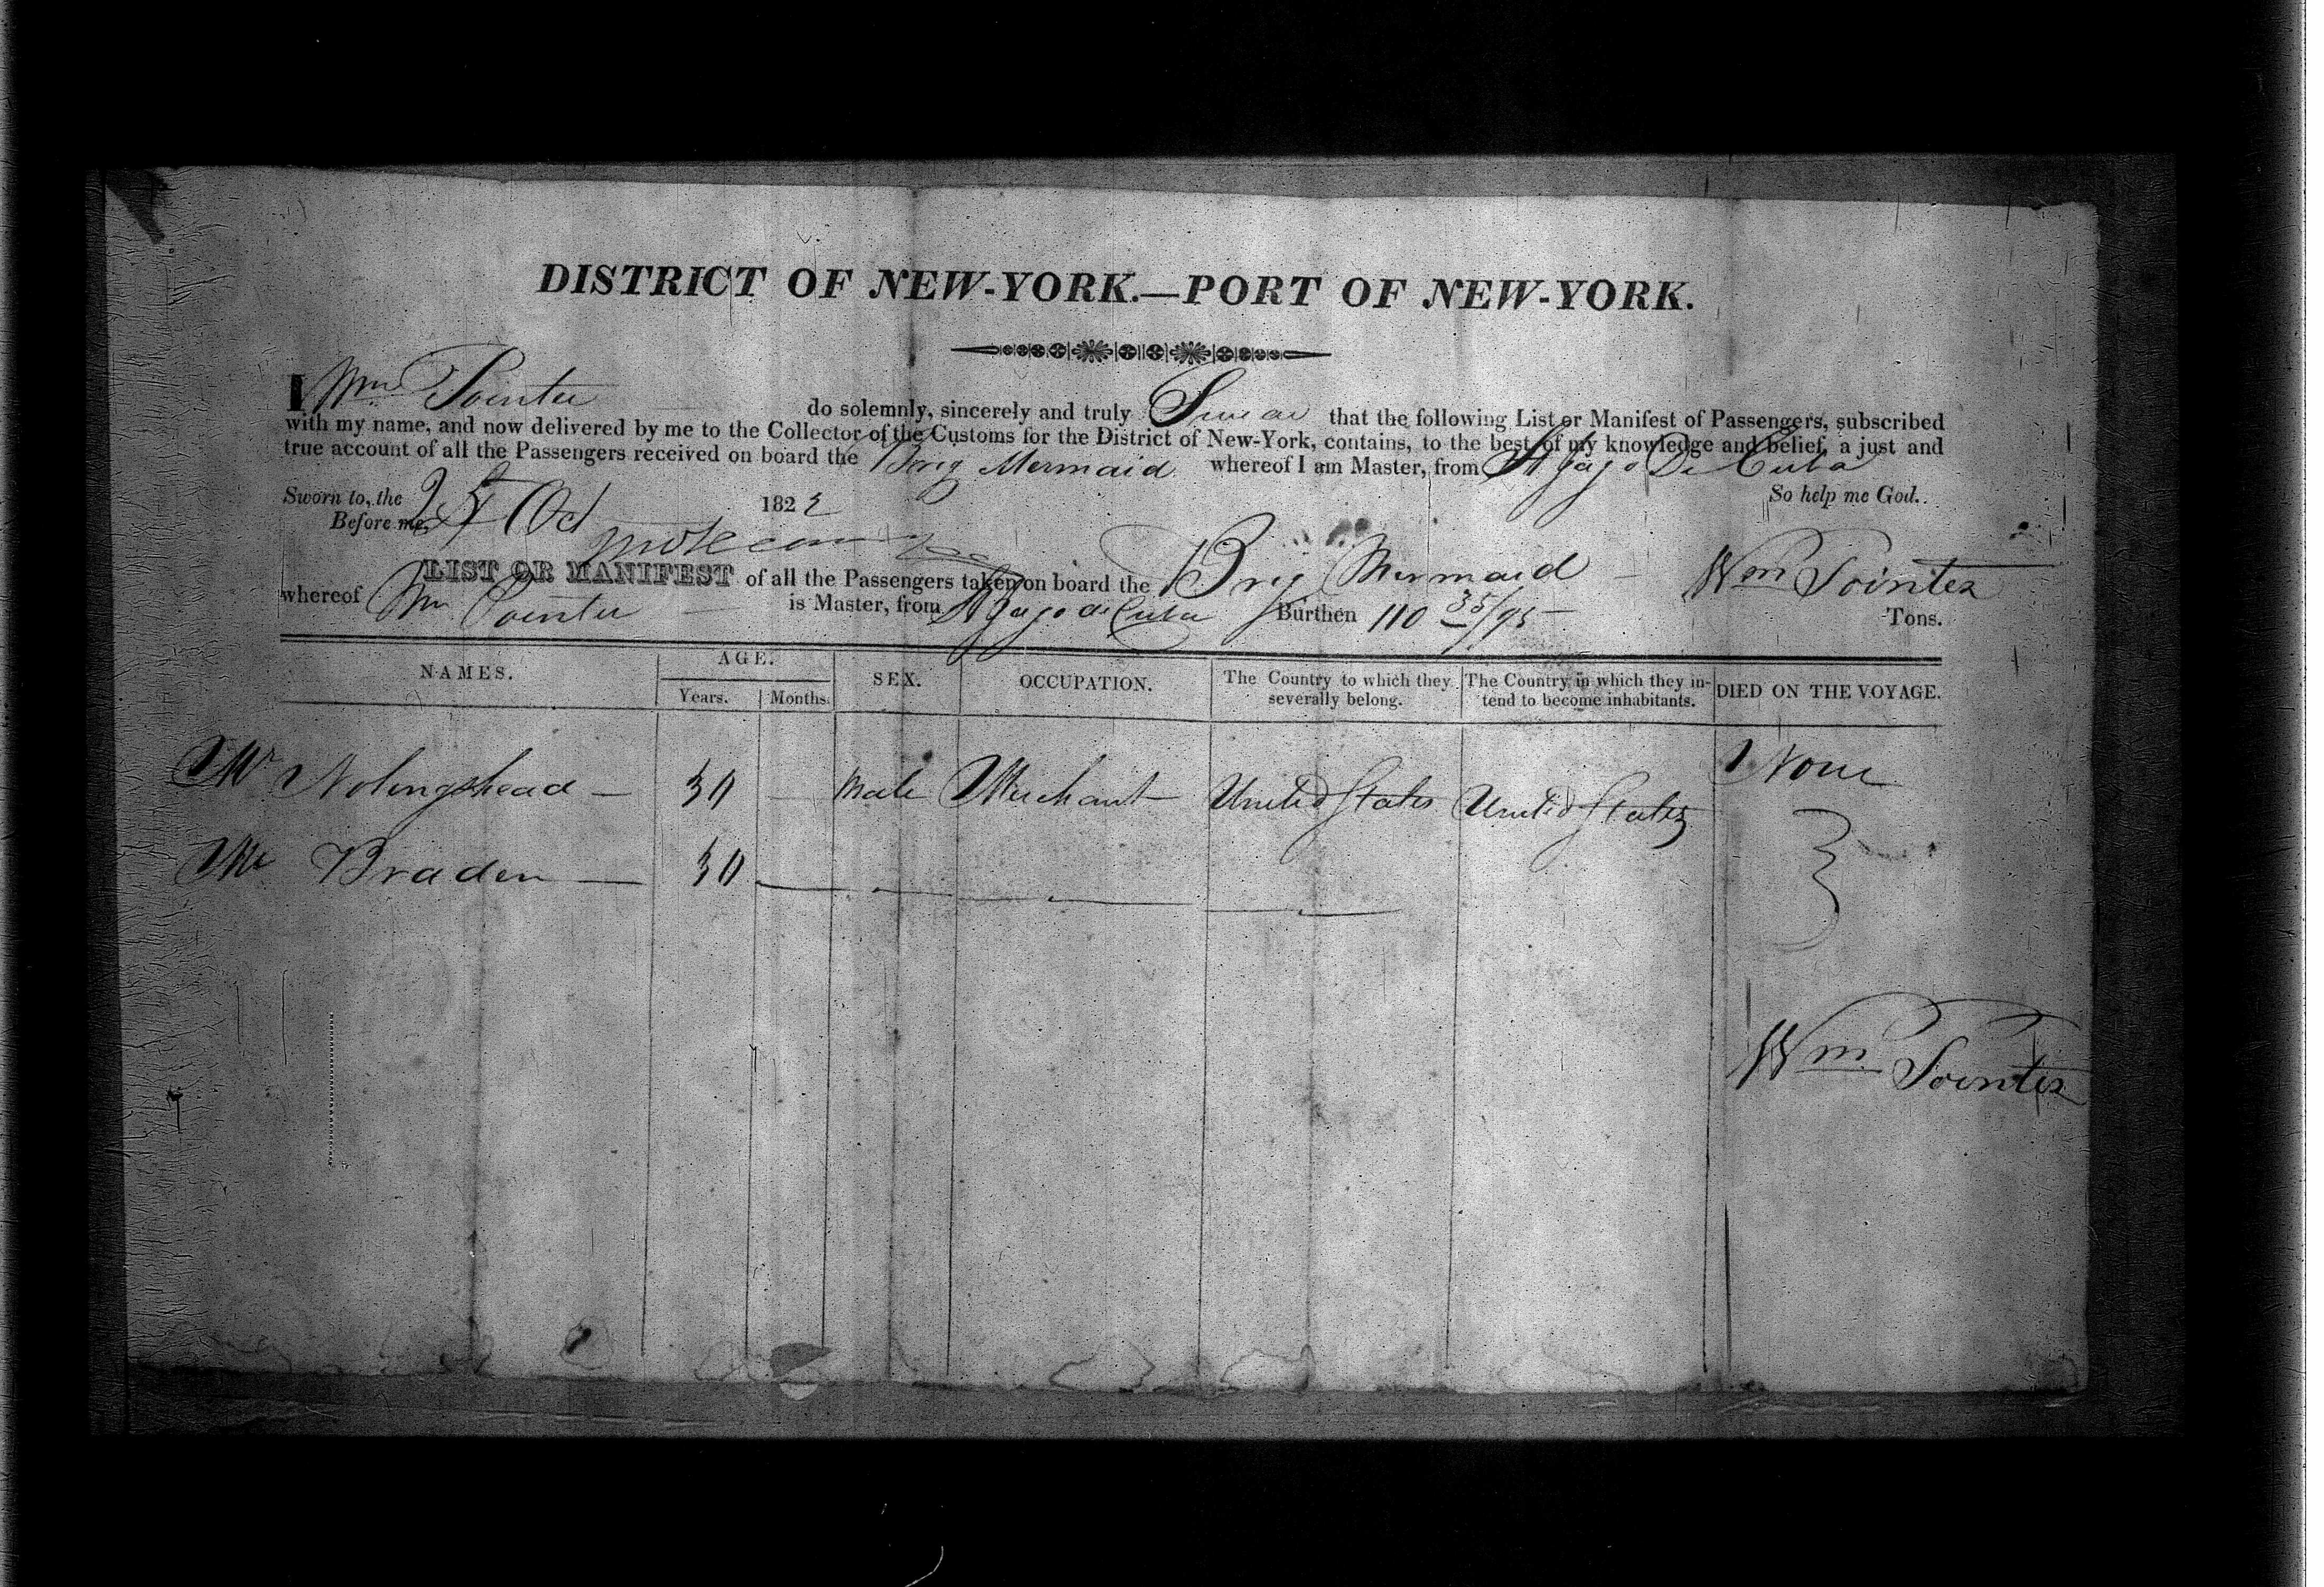 DISTRICT OF NEW-YORK.—PORT OF NEW-YORK.
I Wm Pointer do solemnly, sincerely and truly Swear that the following List or Manifest of Passengers, subscribed
with my name, and now delivered by me to the Collector of the Customs for the District of New-York, contains, to the best of my knowledge and belief, a just and
true account of all the Passengers received on board the Brig Mermaid whereof I am Master, from St Jago De Cuba
Sworn to, the 25 Oct 1822 So help me God.
Before me,
LIST OR MANIFEST of all the Passengers taken on board the Brig Mermaid Wm Pointer
whereof Wm Pointer is Master, from St Jago de Cuba Burthen 110 35/95 Tons.
NAMES. AGE. SEX. OCCUPATION. The Country to which they severally belong. The Country in which they intend to become inhabitants. DIED ON THE VOYAGE.
Years. Months.
Mr Holingshead — 30 — Male Merchant United States United States None
Mr Braden — 30
Wm Pointer